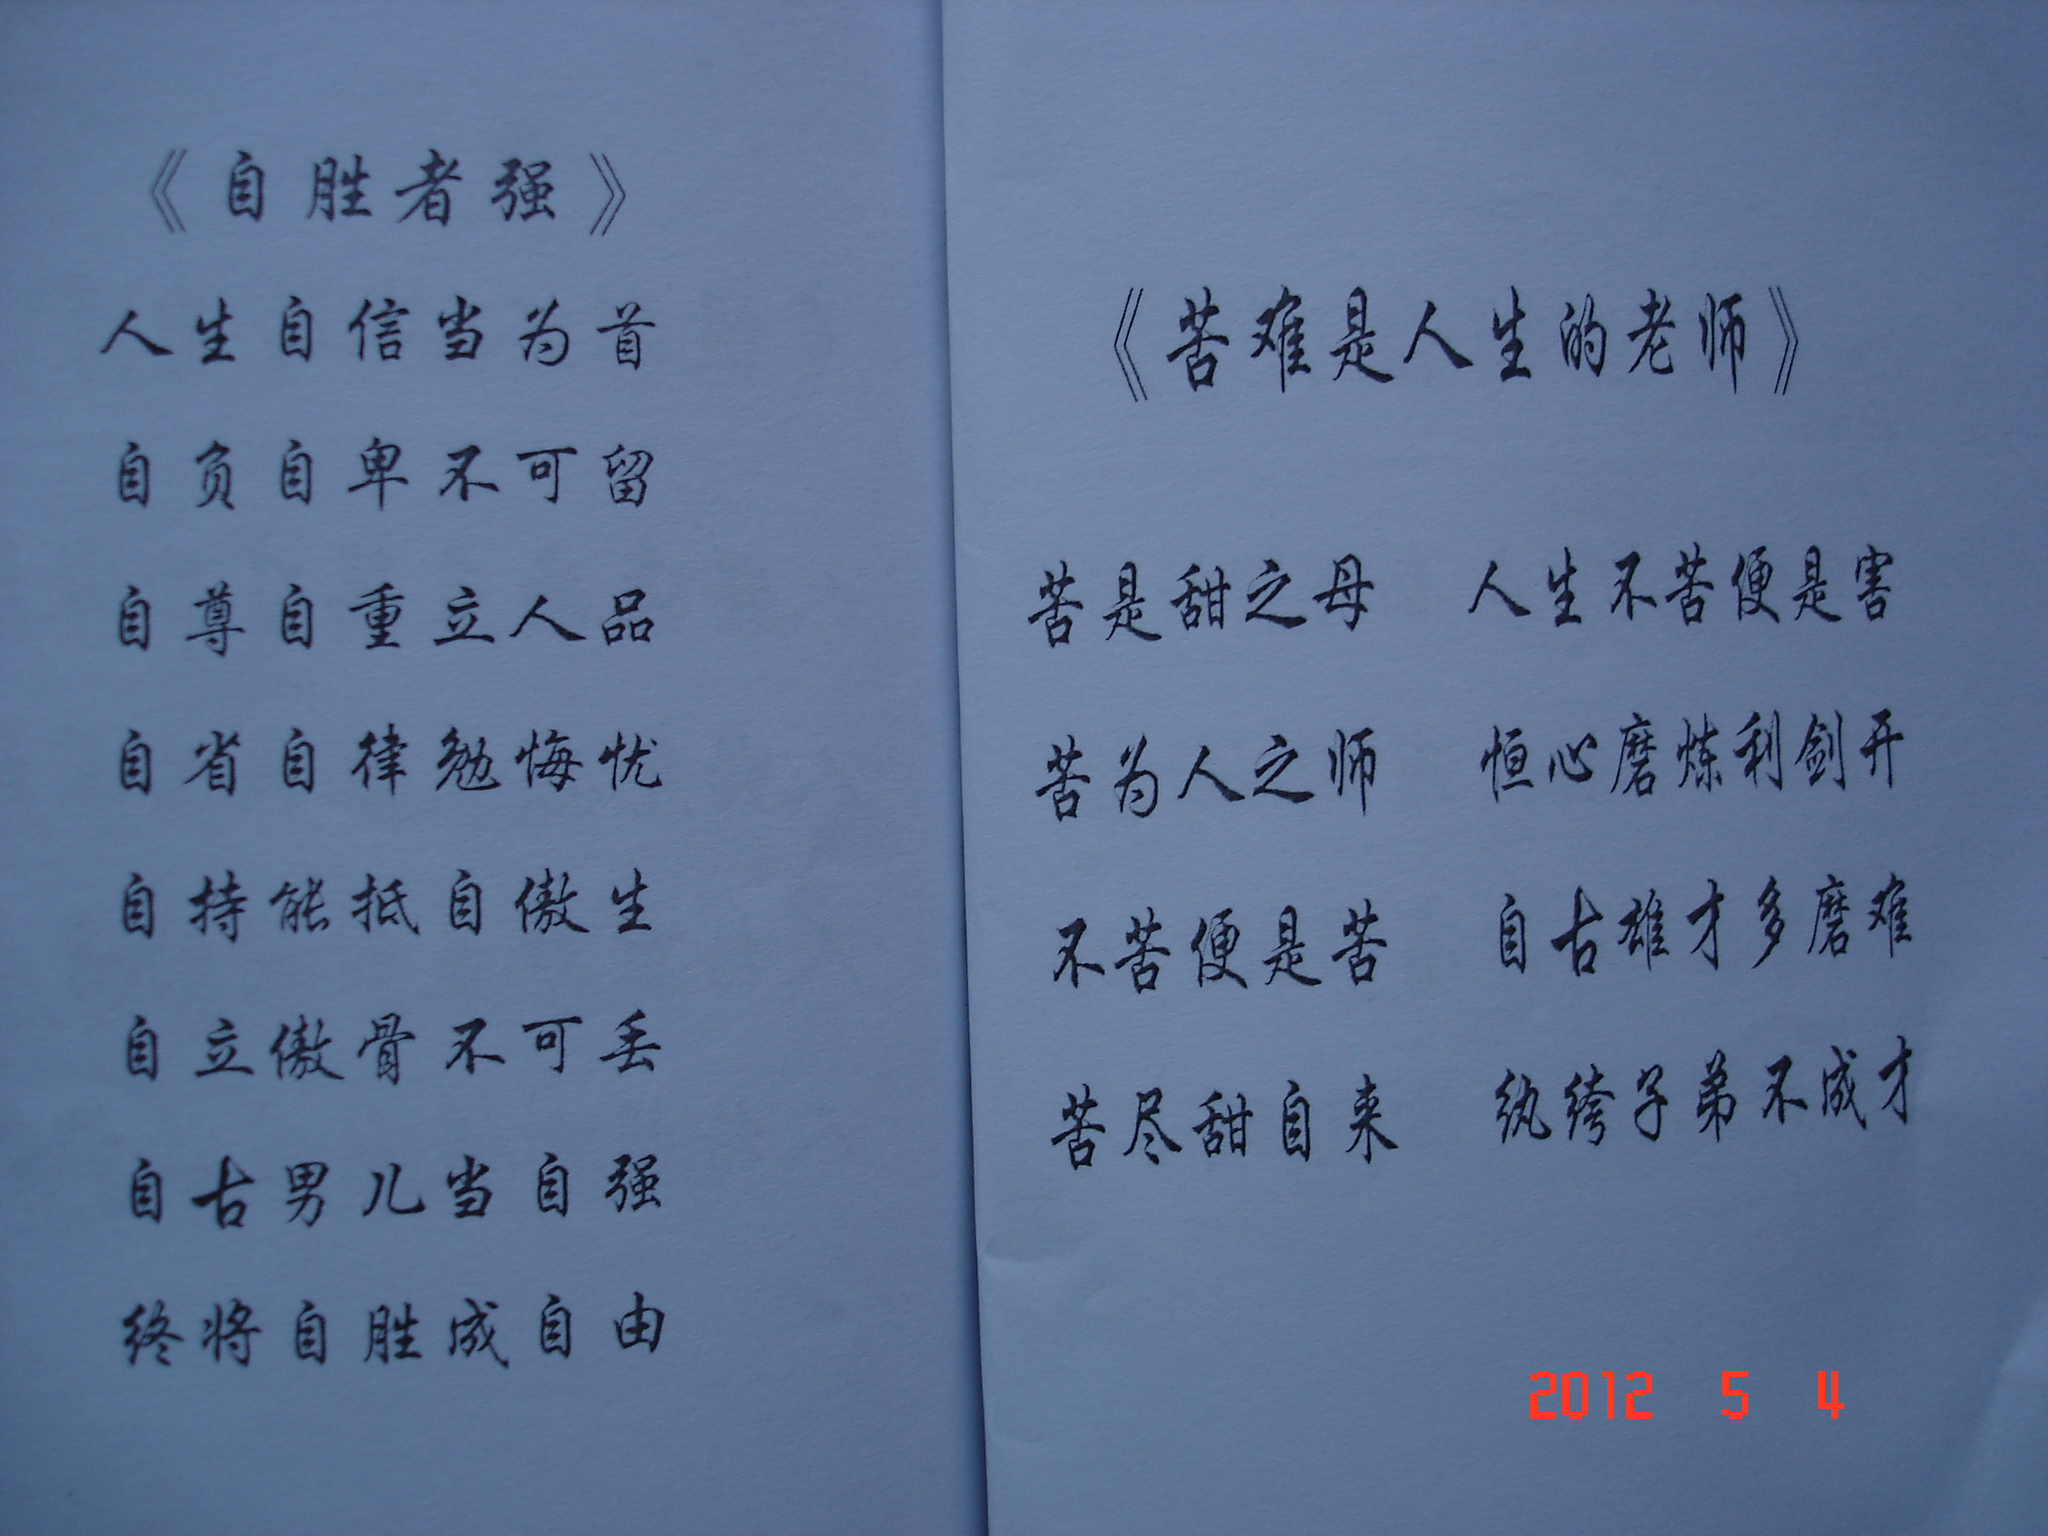 《自胜者强》
人生自信当为首
自负自卑不可留
自尊自重立人品
自省自律勉悔忧
自持能抵自傲生
自立傲骨不可丢
自古男儿当自强
终将自胜成自由
《苦难是人生的老师》
苦是甜之母 人生不苦便是害
苦为人之师 恒心磨炼利剑开
不苦便是苦 自古雄才多磨难
苦尽甜自来 纨绔子弟不成才
2012 5 4